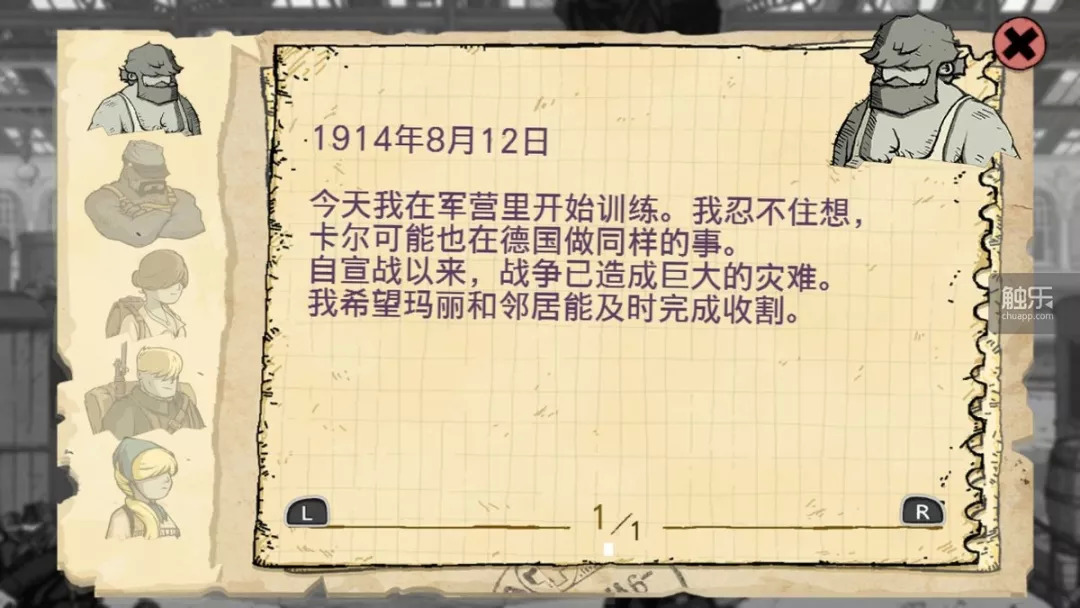 1914年8月12日
今天我在军营里开始训练。我忍不住想，
卡尔可能也在德国做同样的事。
自宣战以来，战争已造成巨大的灾难。
我希望玛丽和邻居能及时完成收割。
触乐
chuapp.com
L
1/1
R